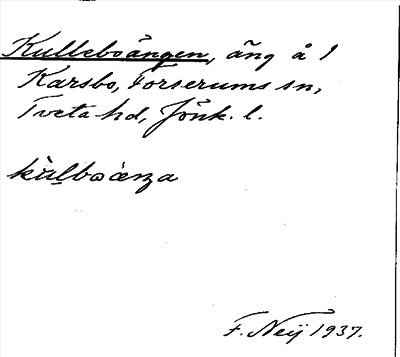 Kulleboängen, äng å 1
Karsbo, Forserums sn,
Tveta hd, Jönk. l.
F. Neij 1937.